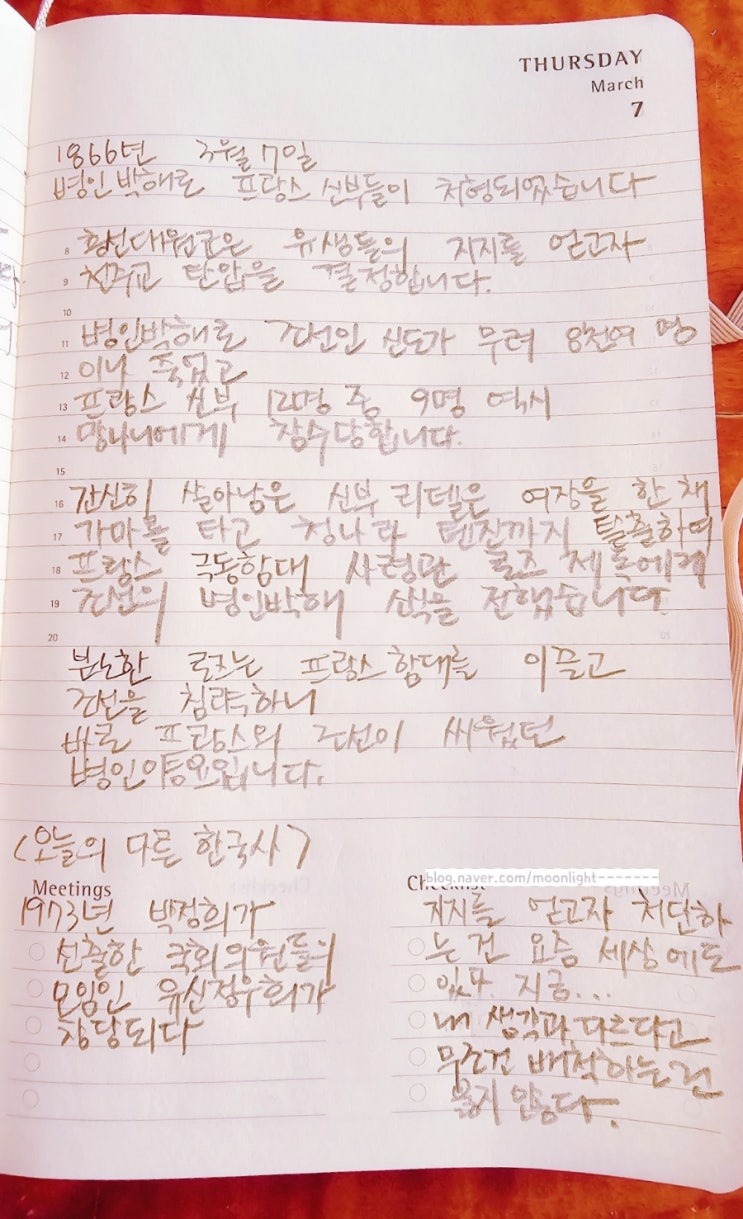 THURSDAY
March
7
1866년 3월 7일
병인박해로 프랑스 신부들이 처형되었습니다
8 흥선대원군은 유생들의 지지를 얻고자
9 천주교 탄압을 결정합니다.
10
11 병인박해로 조선인 신도가 무려 8천여 명
12 이나 죽었고
13 프랑스 신부 12명 중 9명 역시
14 망나니에게 참수당합니다.
15
16 간신히 살아남은 신부 리델은 여장을 한 채
17 가마를 타고 청나라 톈진까지 탈출하여
18 프랑스 극동함대 사령관 로즈 제독에게
19 조선의 병인박해 소식을 전했습니다.
20
분노한 로즈는 프랑스함대를 이끌고
조선을 침략하니
바로 프랑스와 조선이 싸웠던
병인양요입니다.
(오늘의 다른 한국사)
blog.naver.com/moonlight-------
Meetings
1973년 박정희가
선출한 국회의원들의
모임인 유신정우회가
창당되다
Checklist
지지를 얻고자 처단하
는 건 요즘 세상에도
있다. 지금...
내 생각과 다르다고
무조건 배척하는 건
옳지 않다.